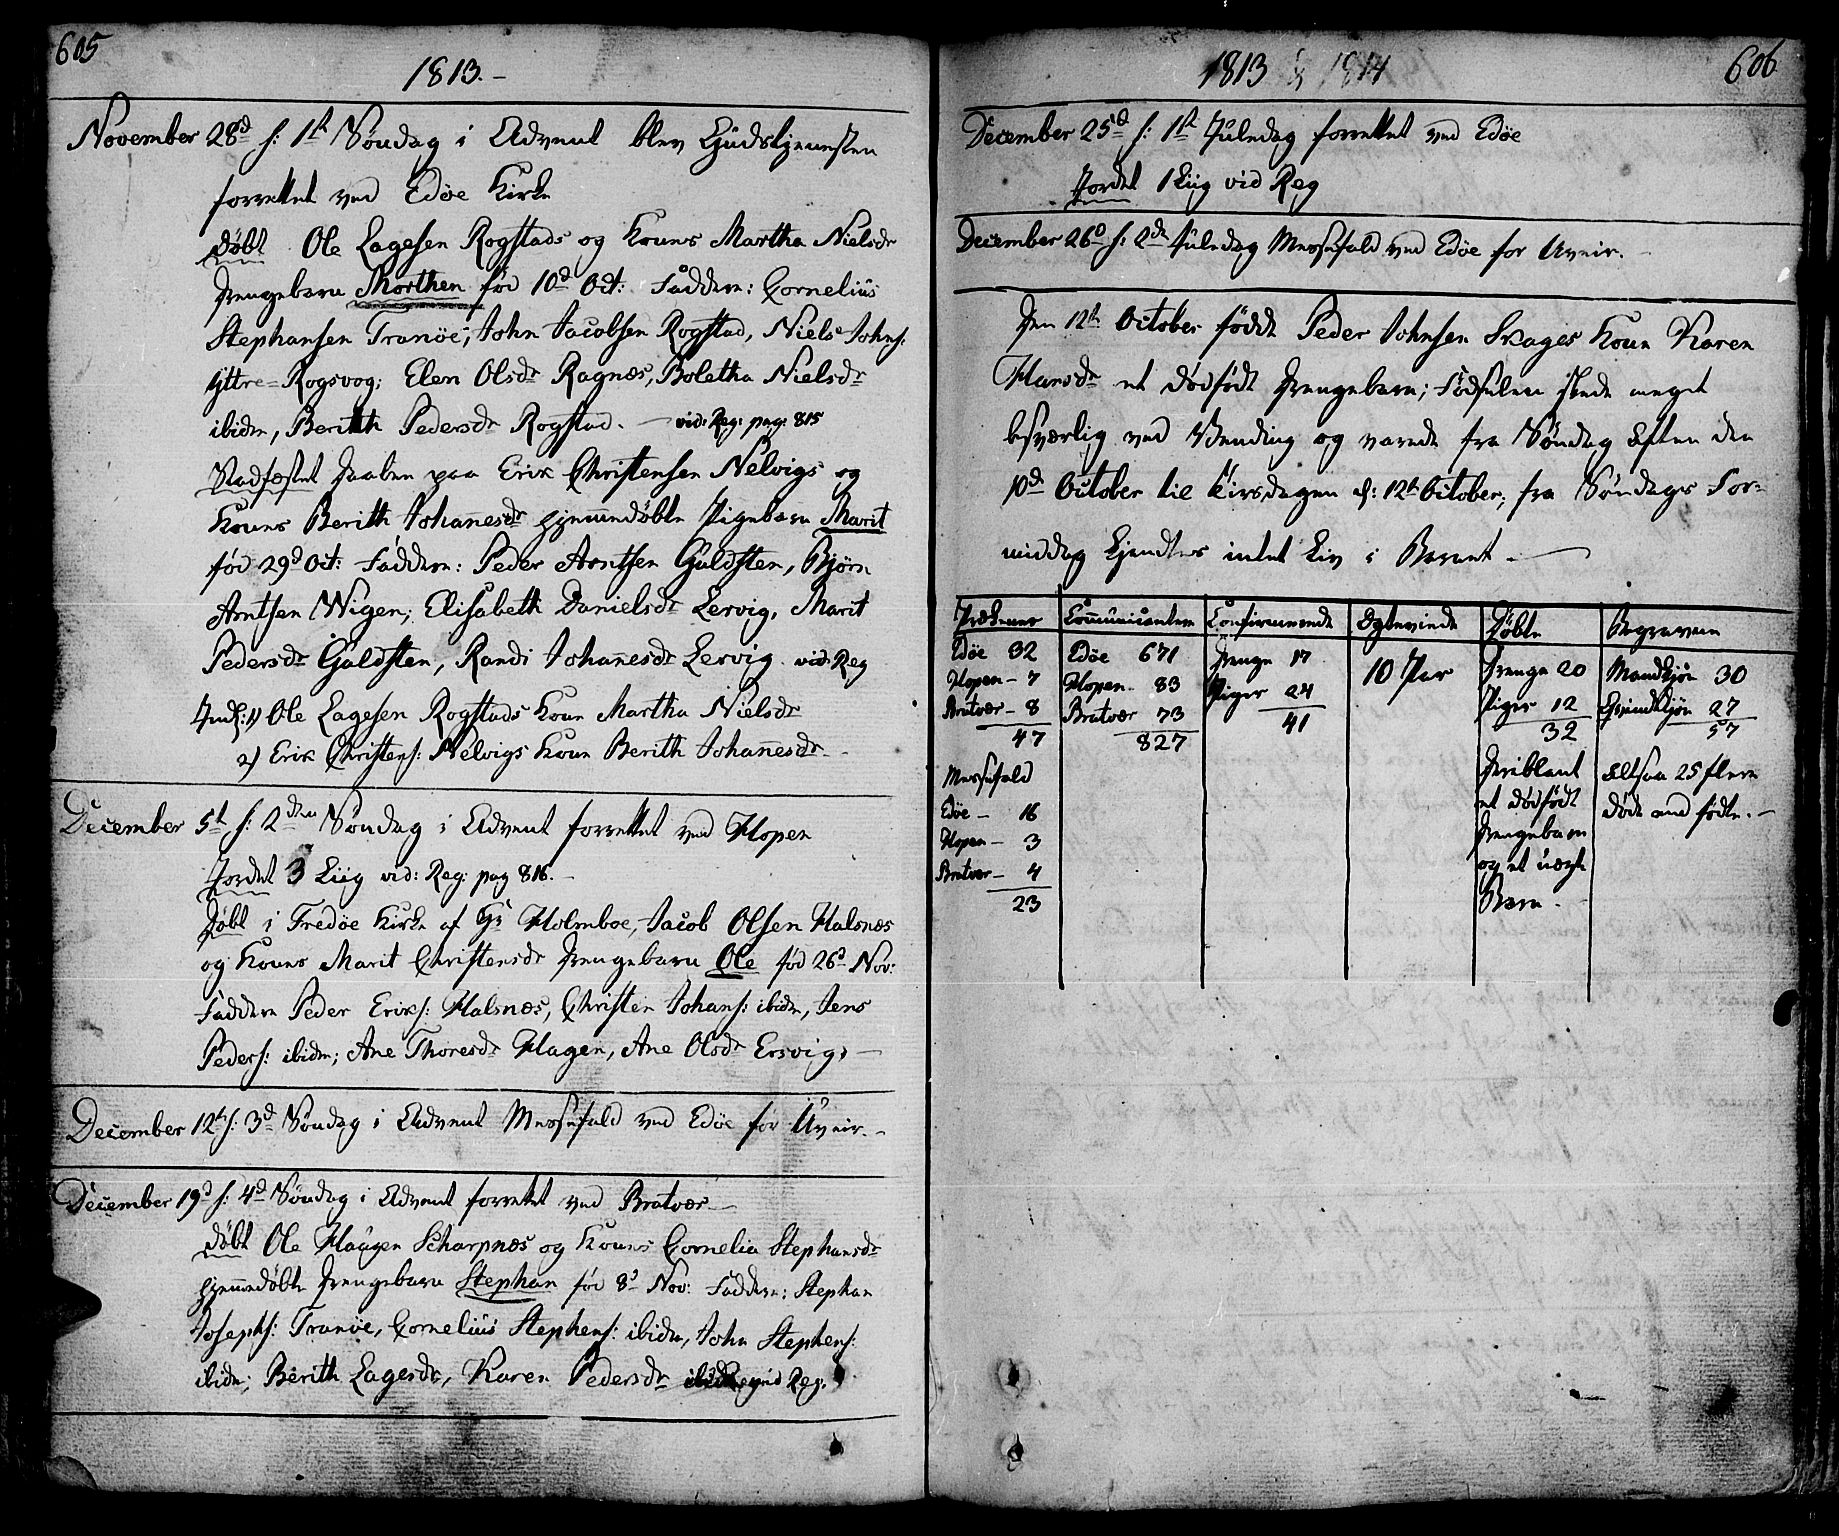 605
1813.-
November 28d s: 1st Søndag i Advent blev Gudstjenesten
forrettet ved Edøe Kirke
Døbt Ole Lagesen Rogstads og Kones Martha Nielsdr
Drengebarn Morthen fød 10d Oct: Faddere: Cornelius
Stephansen Tranöe, John Jacobsen Rogstad, Niels Johns:
Yttre=Rogsvog; Elen Olsdr Ragnæs, Boletha Nielsdr
ibidm, Berith Pedersdr Rogstad. - vid: Reg: pag: 815
Stadfæstet Daaben paa Erik Christensen Nelvigs og
Kones Berith Johanesdr hjemmedøbte Pigebarn Marit
fød 29d Oct: Faddere: Peder Arntsen Guldsten, Bjørn
Arntsen Wigen; Elisabeth Danielsdr Lervig, Marit
Pedersdr Guldsten, Randi Johanesdr Lervig. vid: Reg
Indl: 1) Ole Lagesen Rogstads Kone Martha Nielsdr
2) Erik Christens: Nelvigs Kone Berith Johanesdr -
December 5t s: 2den Søndag i Advent forrettet ved Hopen
Jordet 3 Liig vid: Reg: pag 816.-
Døbt i Fredöe Kirke af Hr Holmboe, Jacob Olsen Halsnæs
og Kones Marit Christensdr Drengebarn Ole fød 26d Nov:
Faddere Peder Eriks: Halsnæs, Christen Johans: ibidm, Jens
Peders: ibidm; Ane Thoresdr Hagen, Ane Olsdr Ersvig. -
December 12t s: 3d Søndag i Advent Messefald ved Edöe for Uveir. -
December 19d s: 4d Søndag i Advent forrettet ved Bratvær -
Døbt Ole Haugen Scharpnæs og Kones Cornelia Stephansdr
hjemmedøbte Drengebarn Stephan fød 8d Nov: Faddere: Stephan
Josephs: Tranöe, Cornelius Stephens: ibidm, John Stephens:
ibidm; Berith Lagesdr, Karen Pedersdr ibidm, vid Reg.
1813 & 1814
606
December 25d s: 1st Juledag forrettet ved Edöe
Jordet 1 Liig vid Reg
December 26d s: 2de Juledag Messefald ved Edöe for Uveir. -
Den 12te October fødde Peder Johnsen Skages Kone Karen
Hansdr et dødfødt Drengebarn; Fødselen skede meget
besværlig ved Vending og varede fra Søndag Aften den
10de October til Tirsdagen d: 12te October; fra Søndags For=
middag kjendtes intet Liv i Barnet. -
Prækener Communicantere Confirmerede Ægteviede Døbte Begravne
Edöe 32 Edöe 671 Drenge 17 10 Par Drenge 20 Mandkjøn 30
Hopen - 7 Hopen - 83 Piger 24 Piger 12 Qvindekjøn 27
Bratvær - 8 Bratvær 73 41 32 57
47 827
Messefald Iribland Altsaa 25 flere
et dødfødt døde end fødte. -
Edöe - 16 Drengebarn
Hopen - 3 og et uægte
Bratvær - 4 Barn -
23